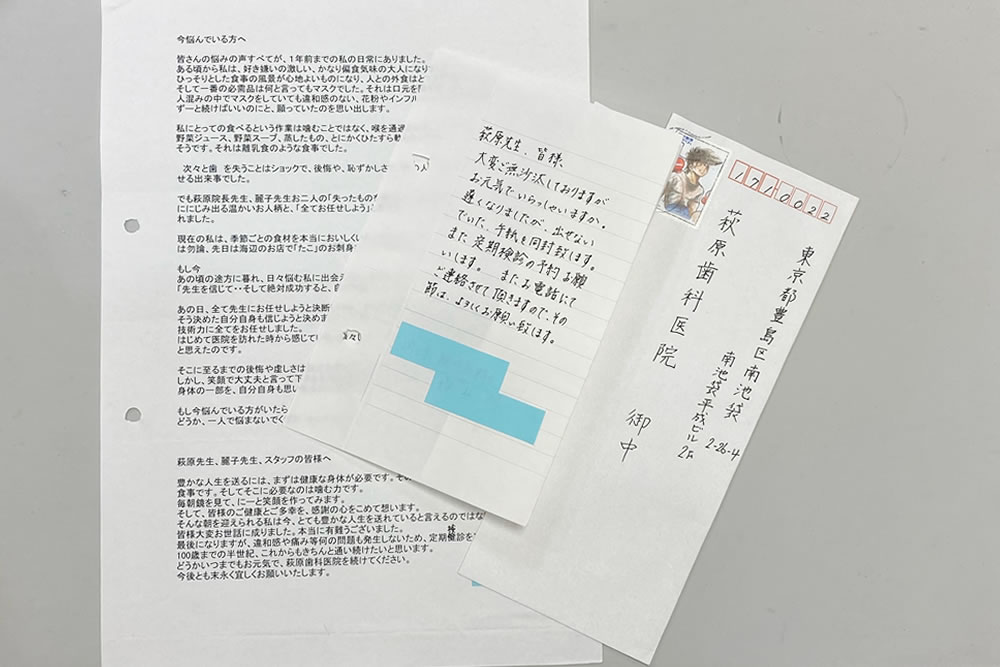 今悩んでいる方へ
皆さんの悩みの声すべてが、1年前までの私の日常にありました。
ある頃から私は、好き嫌いの激しい、かなり偏食気味の大人になり
ひっそりとした食事の風景が心地よいものになり、人との外食はと
そして一番の必需品は何と言ってもマスクでした。それは口元を
人混みの中でマスクをしていても違和感のない、花粉やインフル
ずーと続けばいいのにと、願っていたのを思い出します。
私にとっての食べるという作業は噛むことではなく、喉を通過
野菜ジュース、野菜スープ、蒸したもの、とにかくひたすら
そうです。それは離乳食のような食事でした。
次々と歯 を失うことはショックで、後悔や、恥ずかしさ
せる出来事でした。
でも萩原院長先生、麗子先生お二人の「失ったもの
ににじみ出る温かいお人柄と、「全てお任せしよう」
れました。
現在の私は、季節ごとの食材を本当においしく
は勿論、先日は海辺のお店で「たこ」のお刺身
もし今
あの頃の途方に暮れ、日々悩む私に出会え
「先生を信じて・・そして絶対成功すると、
あの日、全て先生にお任せしようと決断
そう決めた自分自身も信じようと決めま
技術力に全てをお任せしました。
はじめて医院を訪れた時から感じて
と思えたのです。
そこに至るまでの後悔や虚しさは
しかし、笑顔で大丈夫と言って下
身体の一部を、自分自身も思い
もし今悩んでいる方がいたら
どうか、一人で悩まないでく
萩原先生、麗子先生、スタッフの皆様へ
豊かな人生を送るには、まずは健康な身体が必要です。その
食事です。そしてそこに必要なのは噛む力です。
毎朝鏡を見て、にーと笑顔を作ってみます。
そして、皆様のご健康とご多幸を、感謝の心をこめて想います。
そんな朝を迎えられる私は今、とても豊かな人生を送れていると言えるのではな
皆様大変お世話に成りました。本当に有難うございました。
最後になりますが、違和感や痛み等何の問題も発生しないため、定期検診を
100歳までの半世紀、これからもきちんと通い続けたいと思います。
どうかいつまでもお元気で、萩原歯科医院を続けてください。
今後とも末永く宜しくお願いいたします。
萩原先生、皆様、
大変ご無沙汰しておりますが
お元気でいらっしゃいますか。
遅くなりましたが、出せない
でいた、手紙を同封致します。
また定期検診の予約お願
いします。 またお電話にて
ご連絡させて頂きますので、その
節は、よろしくお願い致します。
1710022
東京都豊島区南池袋 2-26-4
南池袋平成ビル2F
萩原歯科医院 御中